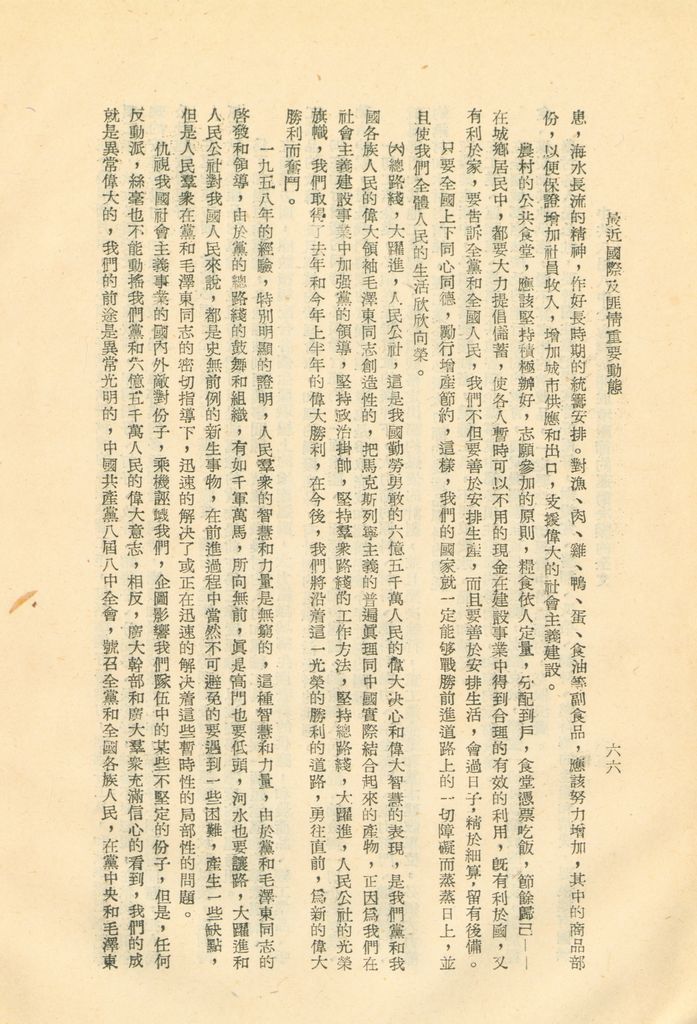 最近國際及匪情重要動態
六六
息，海水長流的精神，作好長時期的統籌安排。對漁、肉、雞、鴨、蛋、食油等副食品，應該努力增加，其中的商品部
份，以便保證增加社員收入，增加城市供應和出口，支援偉大的社會主義建設。
農村的公共食堂，應該堅持積極辦好，志願參加的原則，糧食依人定量，分配到戶，食堂憑票吃飯，節餘歸己——
在城鄉居民中，都要大力提倡儲蓄，使各人暫時可以不用的現金在建設事業中得到合理的有效的利用，旣有利於國，又
有利於家，要告訴全黨和全國人民，我們不但要善於安排生產，而且要善於安排生活，會過日子，精於細算，留有後備。
只要全國上下同心同德，勵行增產節約，這樣，我們的國家就一定能够戰勝前進道路上的一切障礙而蒸蒸日上，並
且使我們全體人民的生活欣欣向榮。
㈥總路綫，大躍進，人民公社，這是我國勤勞勇敢的六億五千萬人民的偉大决心和偉大智慧的表現，是我們黨和我
國各族人民的偉大領袖毛澤東同志創造性的，把馬克斯列寧主義的普遍眞理同中國實際結合起來的產物，正因爲我們在
社會主義建設事業中加强黨的領導，堅持政治掛帥，堅持羣衆路綫的工作方法，堅持總路綫，大躍進，人民公社的光榮
旗幟，我們取得了去年和今年上半年的偉大勝利，在今後，我們將沿着這一光榮的勝利的道路，勇往直前，爲新的偉大
勝利而奮鬥。
一九五八年的經驗，特別明顯的證明，人民羣衆的智慧和力量是無窮的，這種智慧和力量，由於黨和毛澤東同志的
啓發和領導，由於黨的總路綫的鼓舞和組織，有如千軍萬馬，所向無前，眞是高門也要低頭，河水也要讓路，大躍進和
人民公社對我國人民來說，都是史無前例的新生事物，在前進過程中當然不可避免的要遇到一些困難，產生一些缺點，
但是人民羣衆在黨和毛澤東同志的密切指導下，迅速的解決了或正在迅速的解決着這些暫時性的局部性的問題。
仇視我國社會主義事業的國內外敵對份子，乘機誣衊我們，企圖影響我們隊伍中的某些不堅定的份子，但是，任何
反動派，絲毫也不能動搖我們黨和六億五千萬人民的偉大意志，相反，廣大幹部和廣大羣衆充滿信心的看到，我們的成
就是異常偉大的，我們的前途是異常光明的，中國共產黨八屆八中全會，號召全黨和全國各族人民，在黨中央和毛澤東